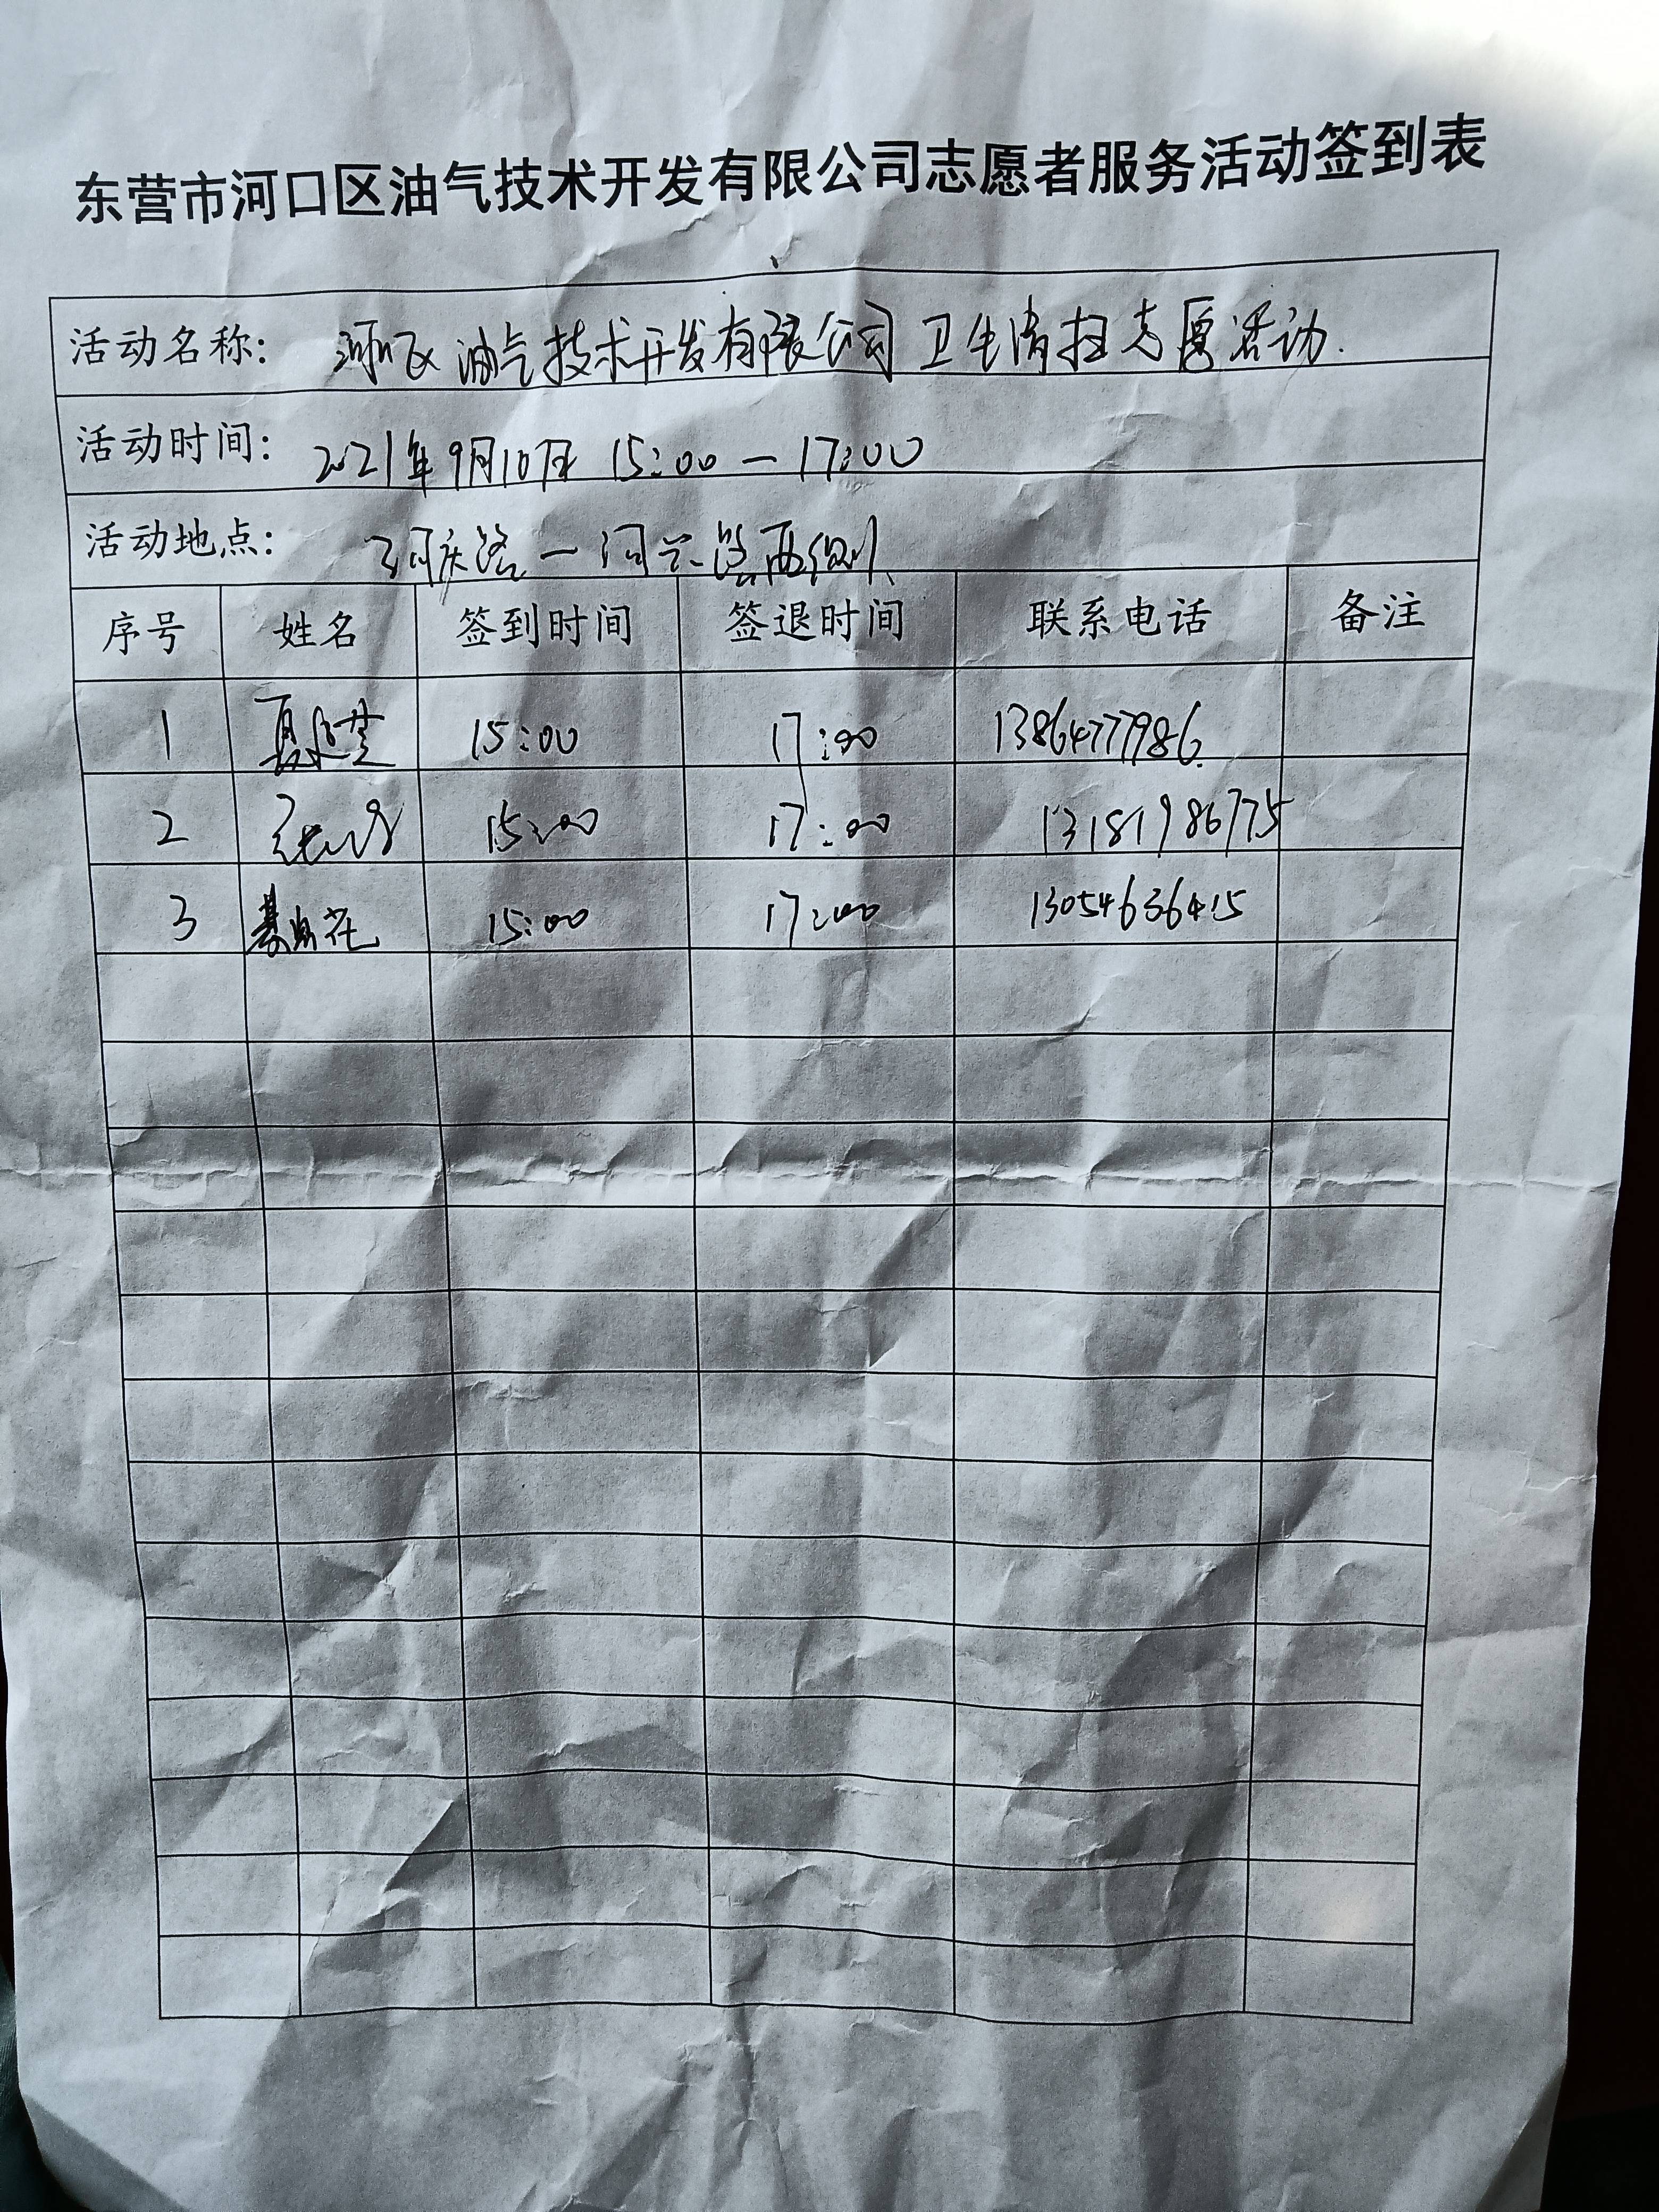 东营市河口区油气技术开发有限公司志愿者服务活动签到表
活动名称: 河口区油气技术开发有限公司卫生清扫志愿活动.
活动时间: 2021年9月10日 15:00 — 17:00
活动地点: 河庆路 — 河兴路两侧
序号 姓名 签到时间 签退时间 联系电话 备注
1 15:00 17:00 13864777986
2 15:00 17:00 13181986775
3 15:00 17:00 13054636415